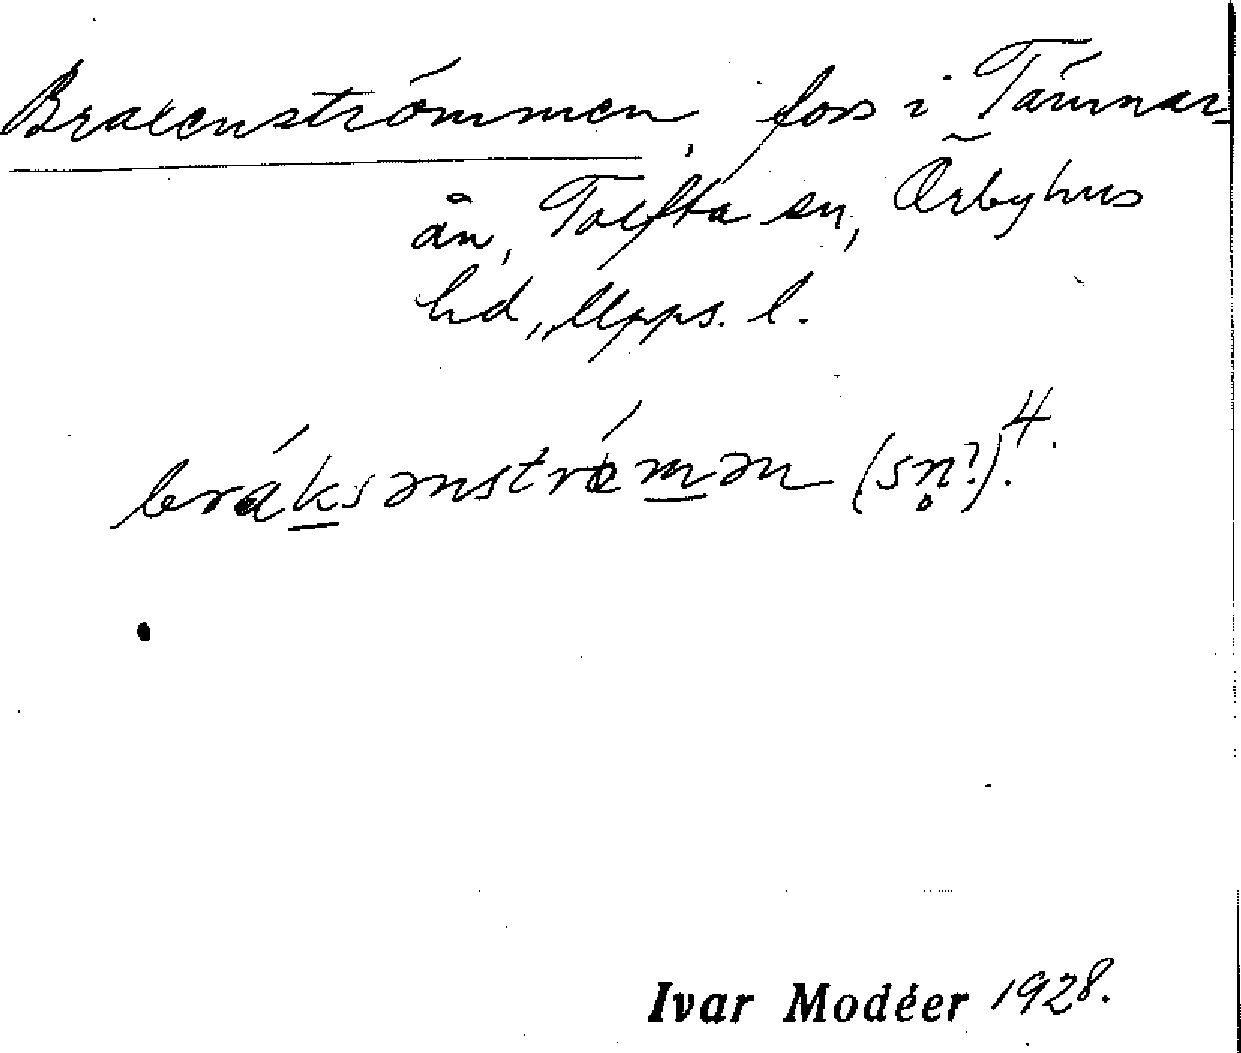 Braxenströmmen, fors i Tämnar-
ån, Tolfta sn, Örbyhus
hd, Upps. l.
bráksənstrǿmən (sn̥?).4.
Ivar Modéer 1928.